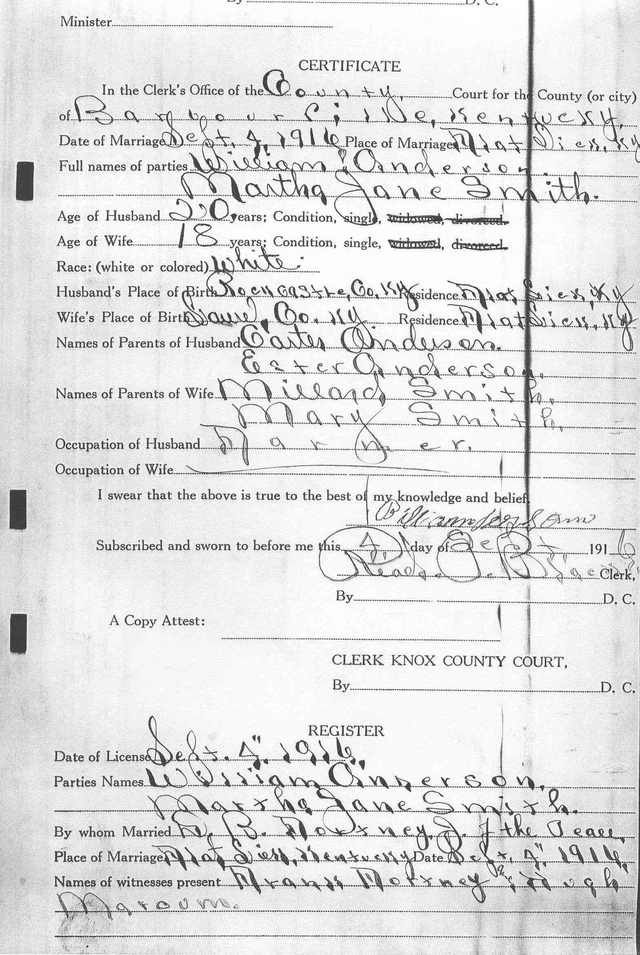 By D. C.
Minister
CERTIFICATE
In the Clerk's Office of the County, Court for the County (or city)
of Barbourville, Kentucky,
Date of Marriage Sept. 4, 1916 Place of Marriage Flat Lick, Ky
Full names of parties William Anderson
Martha Jane Smith.
Age of Husband 20, years; Condition, single, widowed, divorced.
Age of Wife 18 years; Condition, single, widowed, divorced.
Race: (white or colored) White.
Husband's Place of Birth Rockcastle, Co, Ky Residence Flat Lick, Ky
Wife's Place of Birth Laurel, Co. Ky Residence Flat Lick, Ky
Names of Parents of Husband Carter Anderson.
Ester Anderson,
Names of Parents of Wife Millard Smith,
Mary Smith,
Occupation of Husband Farmer.
Occupation of Wife
I swear that the above is true to the best of my knowledge and belief.
Subscribed and sworn to before me this 4 day of Sept 1916
Read Clerk,
By D. C.
A Copy Attest:
CLERK KNOX COUNTY COURT,
By D. C.
REGISTER
Date of License Sept. 4", 1916,
Parties Names William Anderson,
Martha Jane Smith.
By whom Married B. J. of the Peace,
Place of Marriage Flat Lick, Kentucky Date Sept, 4", 1916,
Names of witnesses present Frank Hugh